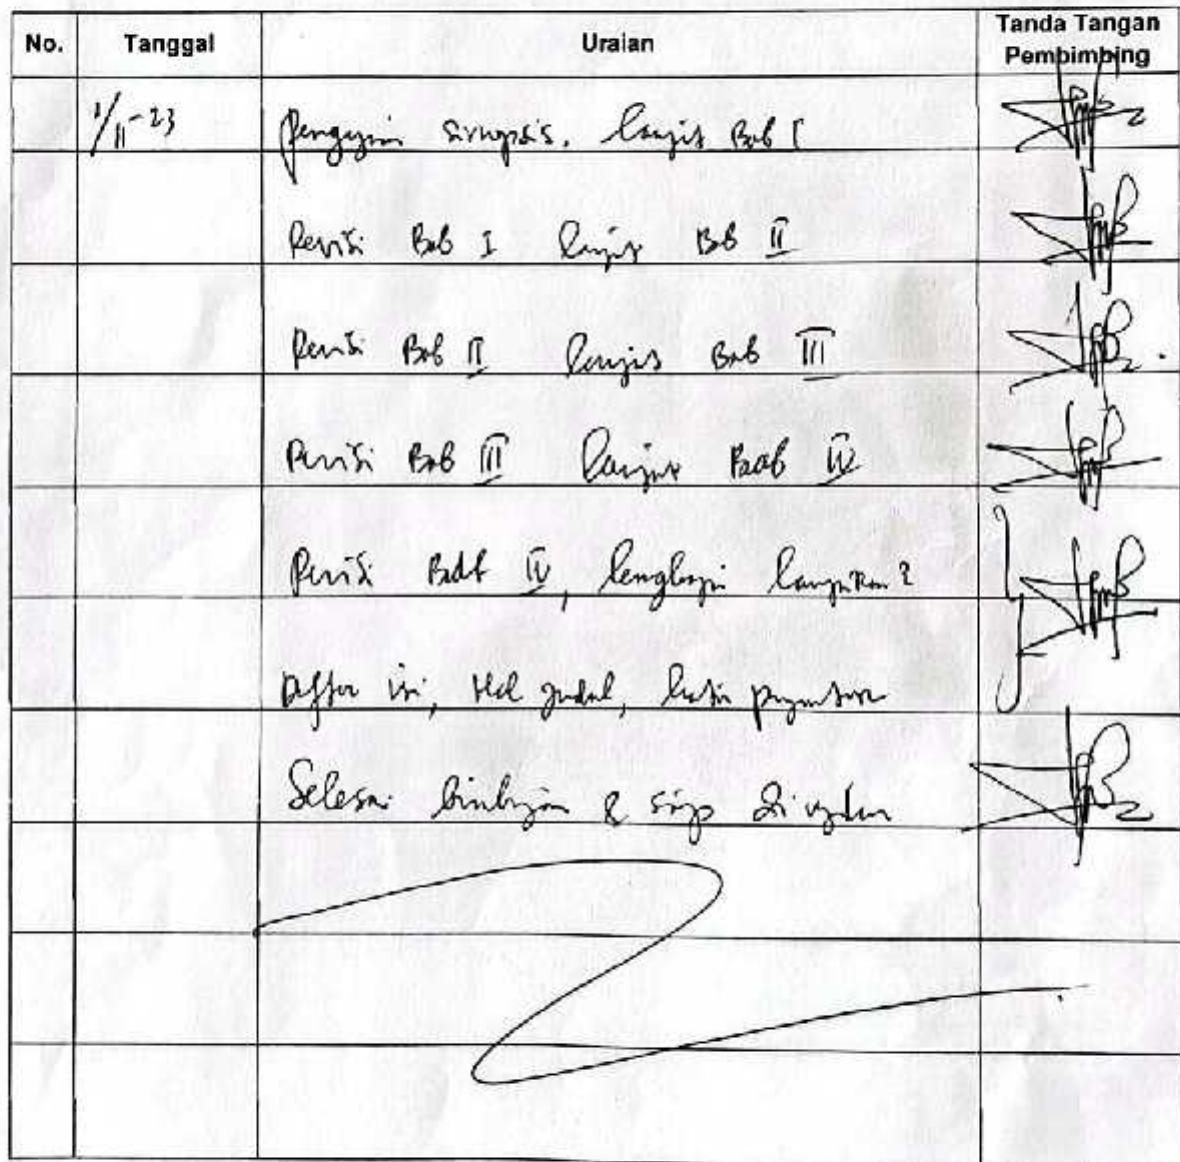 No. Tanggal Uraian Tanda Tangan Pembimbing
1/11-23 Pengajuan sinopsis. lanjut Bab I
Revisi Bab I lanjut Bab II
Revisi Bab II lanjut Bab III
Revisi Bab III lanjut Bab IV
Revisi Bab IV, lengkapi lampiran2
Daftar isi, Hal judul, kata pengantar
Selesai bimbingan & siap di ujikan